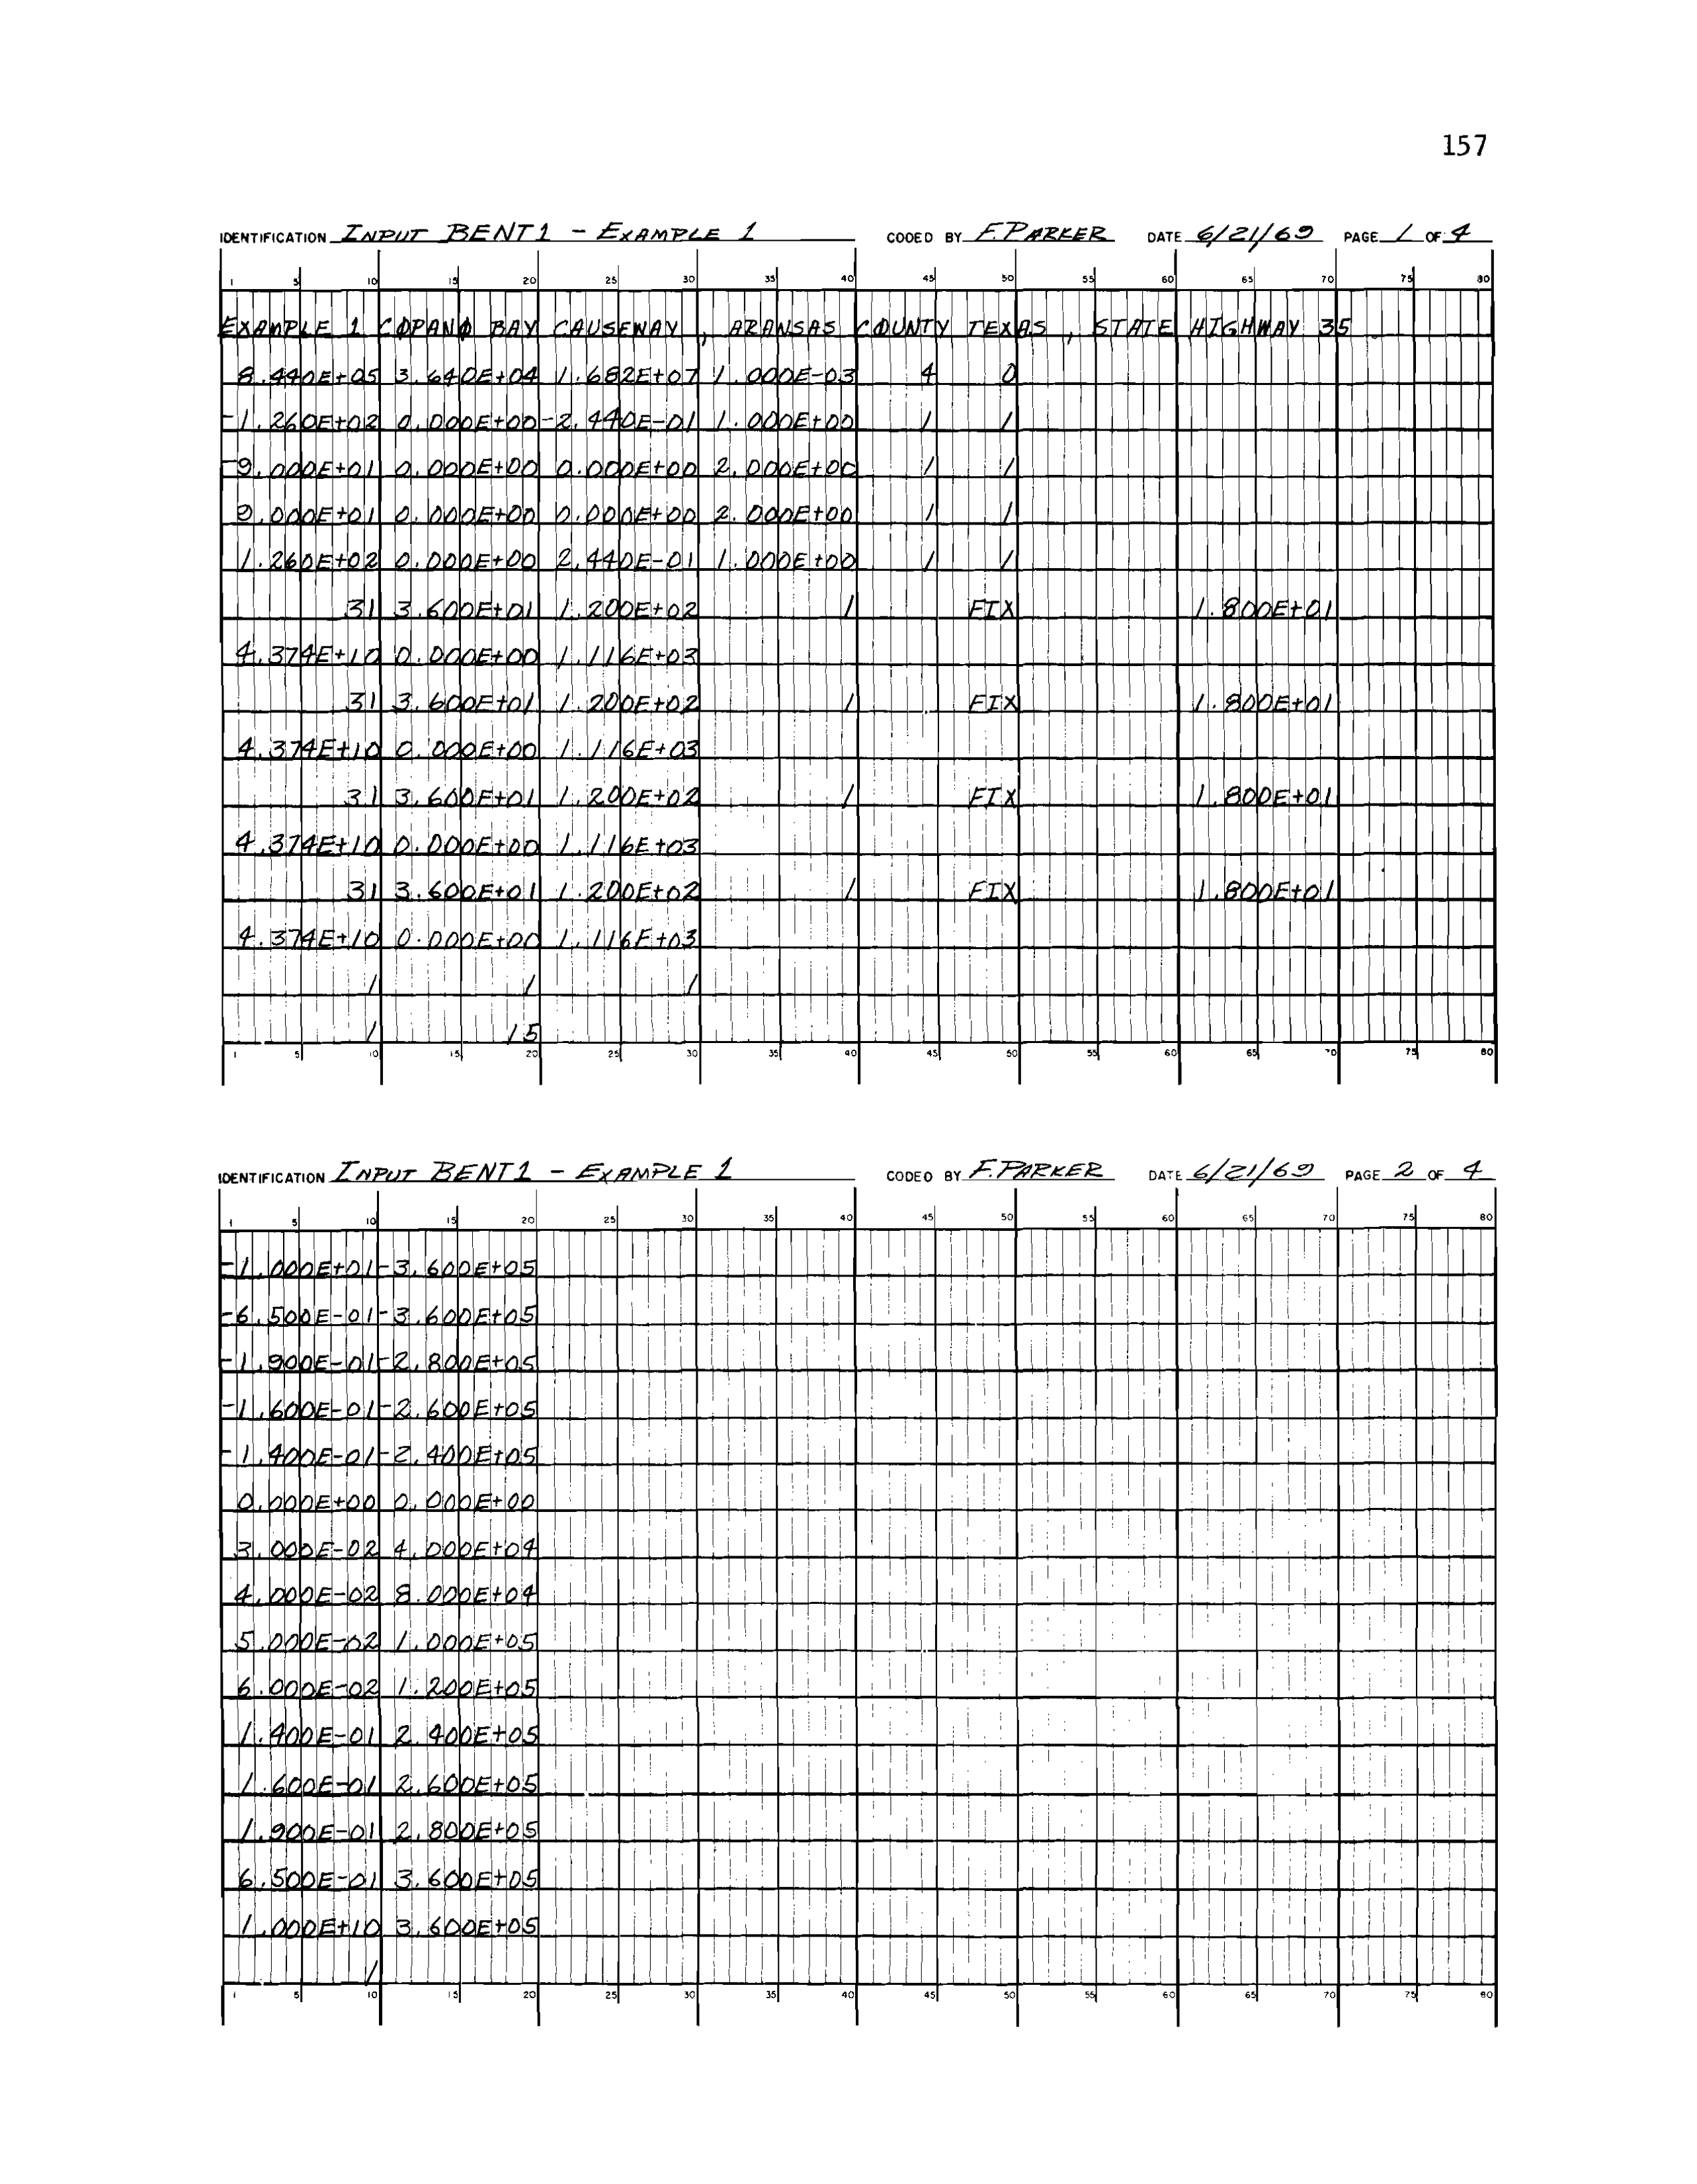 157
IDENTIFICATION INPUT BENT1 - EXAMPLE 1 CODED BY F.PARKER DATE 6/21/69 PAGE 1 OF 4
1 5 10 15 20 25 30 35 40 45 50 55 60 65 70 75 80
EXAMPLE 1 CØPANØ BAY CAUSEWAY , ARANSAS COUNTY TEXAS , STATE HIGHWAY 35
8.440E+05 3.640E+04 1.682E+07 1.000E-03 4 0
-1.260E+02 0.000E+00 -2.440E-01 1.000E+00 1 1
-9.000E+01 0.000E+00 0.000E+00 2.000E+00 1 1
9.000E+01 0.000E+00 0.000E+00 2.000E+00 1 1
1.260E+02 0.000E+00 2.440E-01 1.000E+00 1 1
31 3.600E+01 1.200E+02 1 FIX 1.800E+01
4.374E+10 0.000E+00 1.116E+03
31 3.600E+01 1.200E+02 1 FIX 1.800E+01
4.374E+10 0.000E+00 1.116E+03
31 3.600E+01 1.200E+02 1 FIX 1.800E+01
4.374E+10 0.000E+00 1.116E+03
31 3.600E+01 1.200E+02 1 FIX 1.800E+01
4.374E+10 0.000E+00 1.116E+03
1 1 1
1 15
1 5 10 15 20 25 30 35 40 45 50 55 60 65 70 75 80
IDENTIFICATION INPUT BENT1 - EXAMPLE 1 CODED BY F.PARKER DATE 6/21/69 PAGE 2 OF 4
1 5 10 15 20 25 30 35 40 45 50 55 60 65 70 75 80
-1.000E+01 -3.600E+05
-6.500E-01 -3.600E+05
-1.900E-01 -2.800E+05
-1.600E-01 -2.600E+05
-1.400E-01 -2.400E+05
0.000E+00 0.000E+00
3.000E-02 4.000E+04
4.000E-02 8.000E+04
5.000E-02 1.000E+05
6.000E-02 1.200E+05
1.400E-01 2.400E+05
1.600E-01 2.600E+05
1.900E-01 2.800E+05
6.500E-01 3.600E+05
1.000E+10 3.600E+05
1
1 5 10 15 20 25 30 35 40 45 50 55 60 65 70 75 80